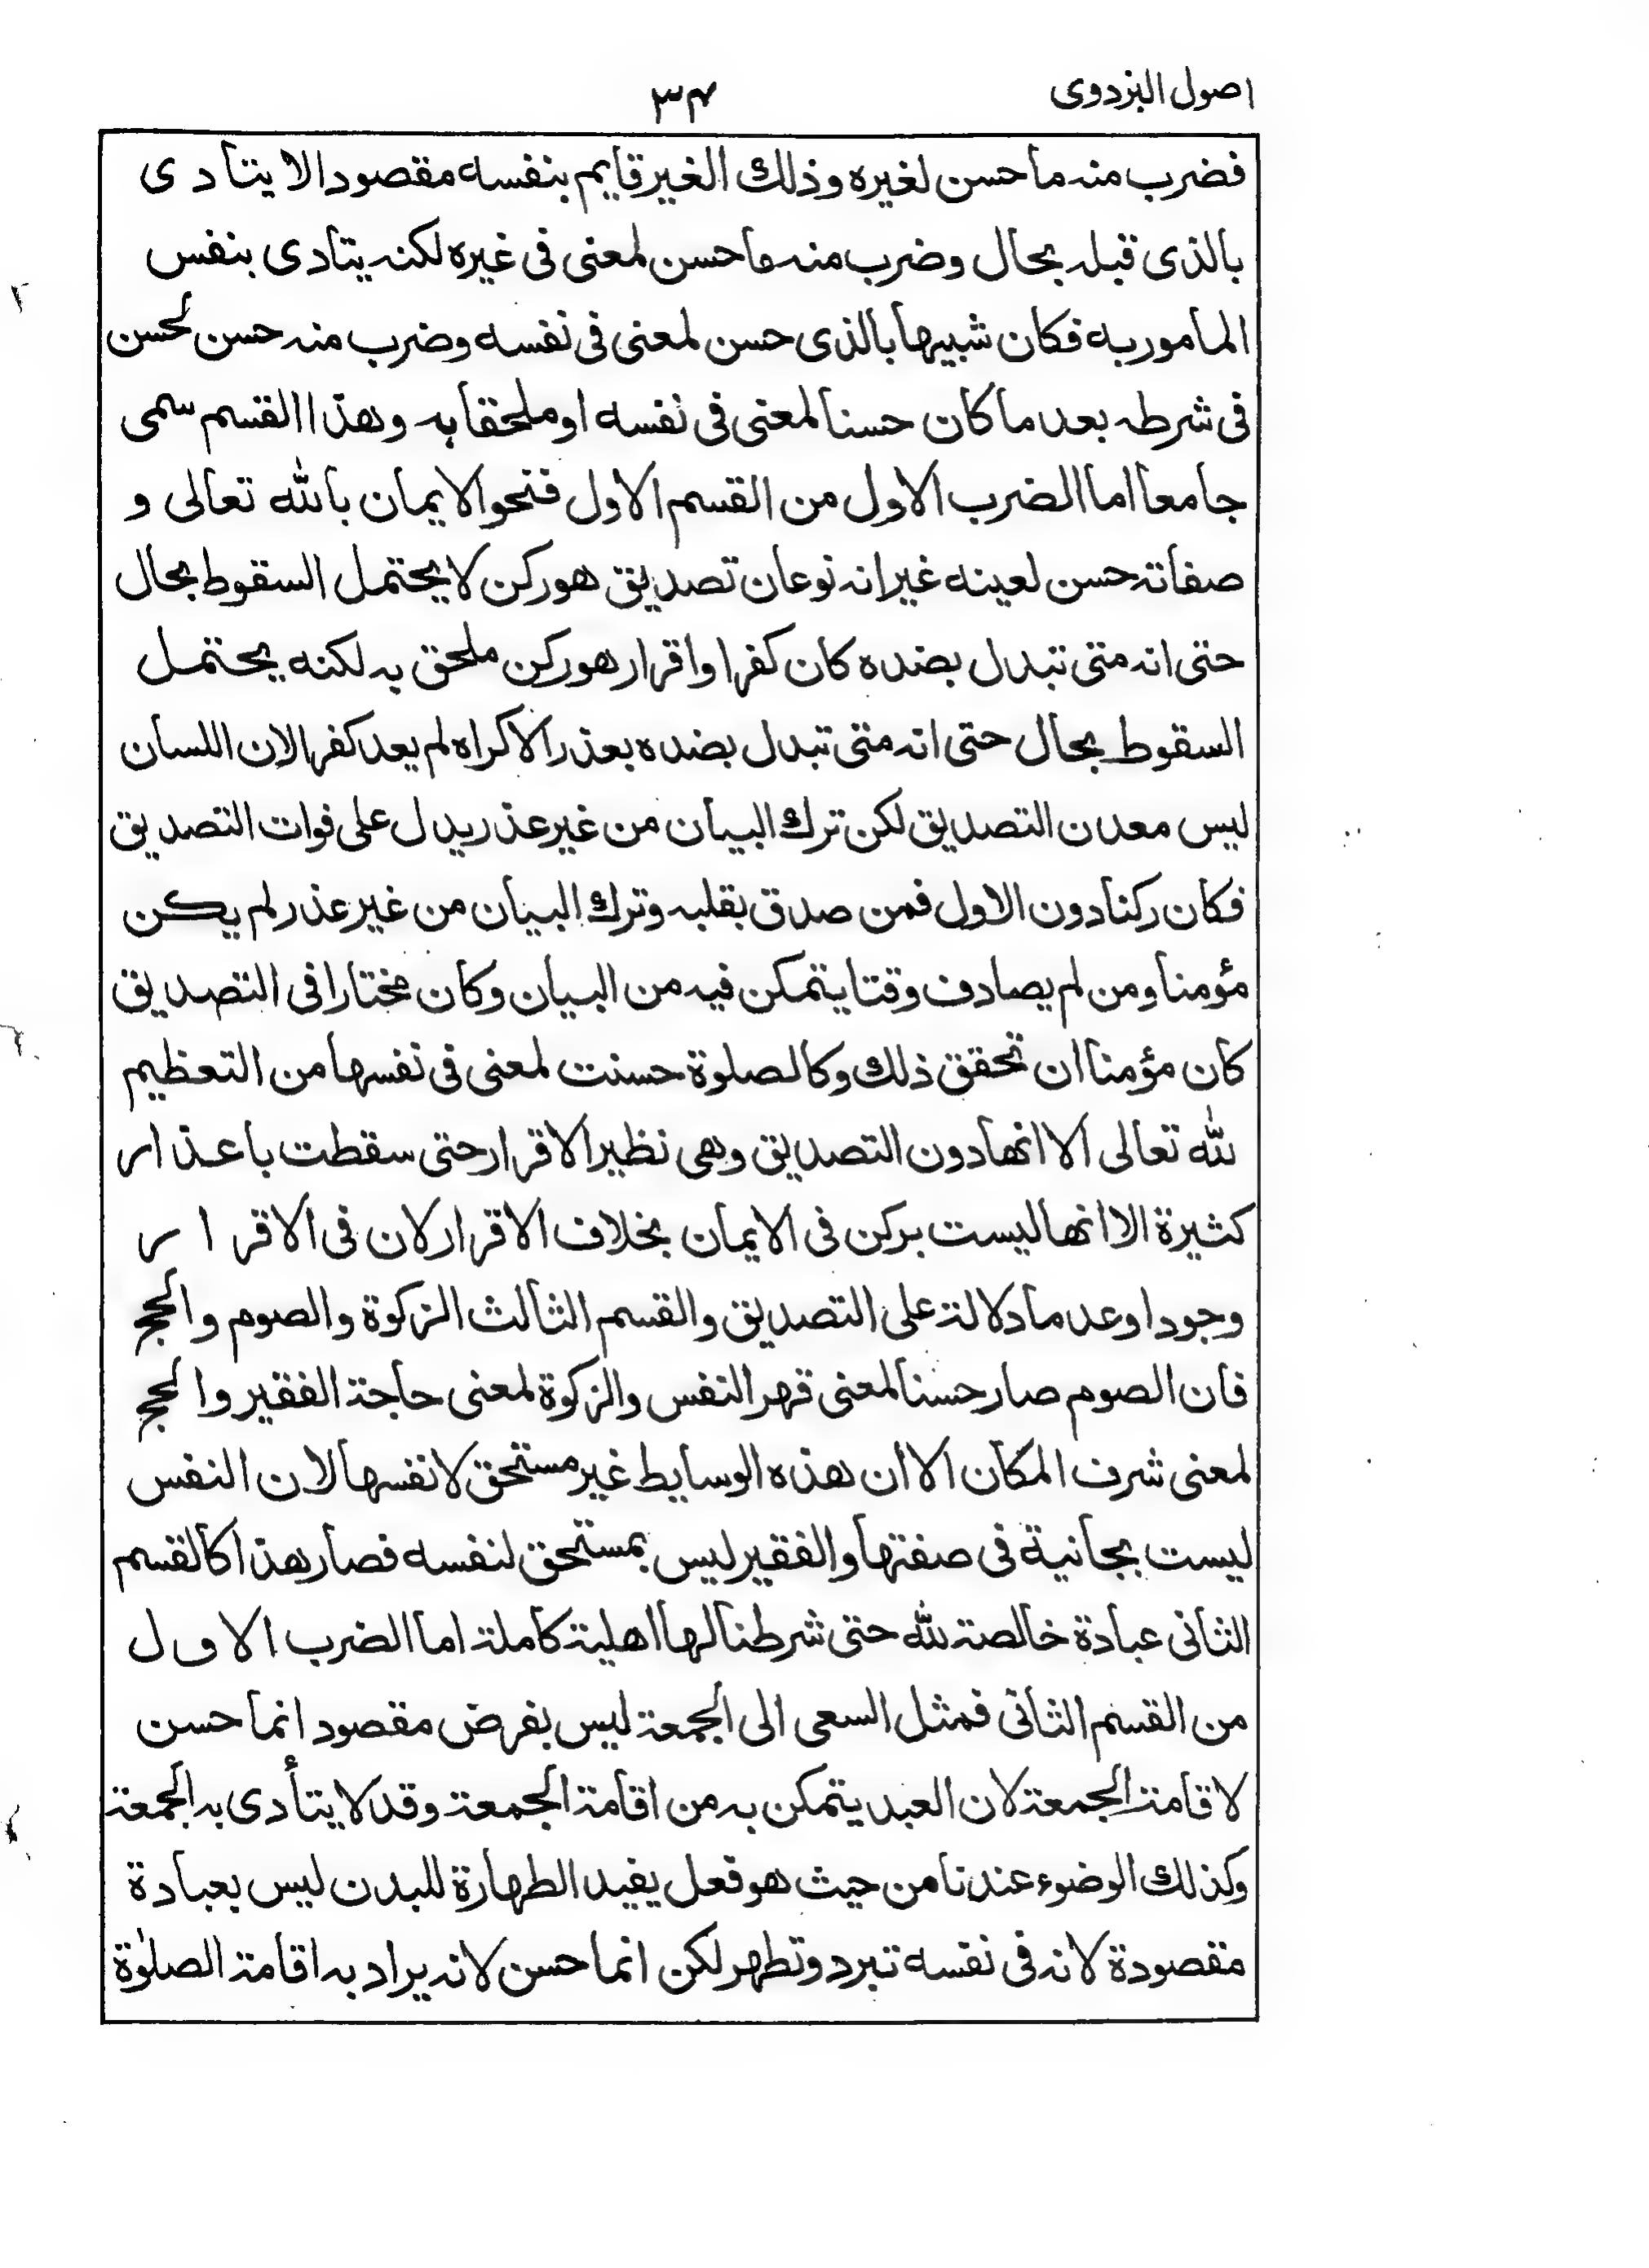 اصول البزدوی
۳۴
فضرب منه ما حسن لغيره وذلك الغير قايم بنفسه مقصودا لا يتادى
بالذى قبله بحال وضرب منه ما حسن لمعنى فى غيره لكنه يتادى بنفس
المامور به فكان شبيها بالذى حسن لمعنى فى نفسه وضرب منه حسن لحسن
فى شرطه بعد ما كان حسنا لمعنى فى نفسه او ملحقا به وهذا القسم سمى
جامعا اما الضرب الاول من القسم الاول فنحو الايمان بالله تعالى و
صفاته حسن لعينه غير انه نوعان تصديق هو ركن لا يحتمل السقوط بحال
حتى انه متى تبدل بضده كان كفرا واقرار هو ركن ملحق به لكنه يحتمل
السقوط بحال حتى انه متى تبدل بضده بعذر الاكراه لم يعد كفرا لان اللسان
ليس معدن التصديق لكن ترك البيان من غير عذر يدل على فوات التصديق
فكان ركنا دون الاول فمن صدق بقلبه وترك البيان من غير عذر لم يكن
مؤمنا ومن لم يصادف وقتا يتمكن فيه من البيان وكان مختارا فى التصديق
كان مؤمنا ان تحقق ذلك وكالصلوة حسنت لمعنى فى نفسها من التعظيم
لله تعالى الا انها دون التصديق وهى نظير الاقرار حتى سقطت باعذار
كثيرة الا انها ليست بركن فى الايمان بخلاف الاقرار لان فى الاقرار
وجودا وعدما دلالة على التصديق والقسم الثالث الزكوة والصوم والحج
فان الصوم صار حسنا لمعنى قهر النفس والزكوة لمعنى حاجة الفقير والحج
لمعنى شرف المكان الا ان هذه الوسايط غير مستحق لانفسها لان النفس
ليست بجانية فى صفتها والفقير ليس بمستحق لنفسه فصار هذا كالقسم
الثانى عبادة خالصة لله حتى شرطنا لها اهلية كاملة اما الضرب الاول
من القسم الثانى فمثل السعى الى الجمعة ليس بفرض مقصود انما حسن
لاقامة الجمعة لان العبد يتمكن به من اقامة الجمعة وقد لا يتأدى به الجمعة
وكذلك الوضوء عندنا من حيث هو فعل يفيد الطهارة للبدن ليس بعبادة
مقصودة لانه فى نفسه تبرد وتطهر لكن انما حسن لانه يراد به اقامة الصلوٰة